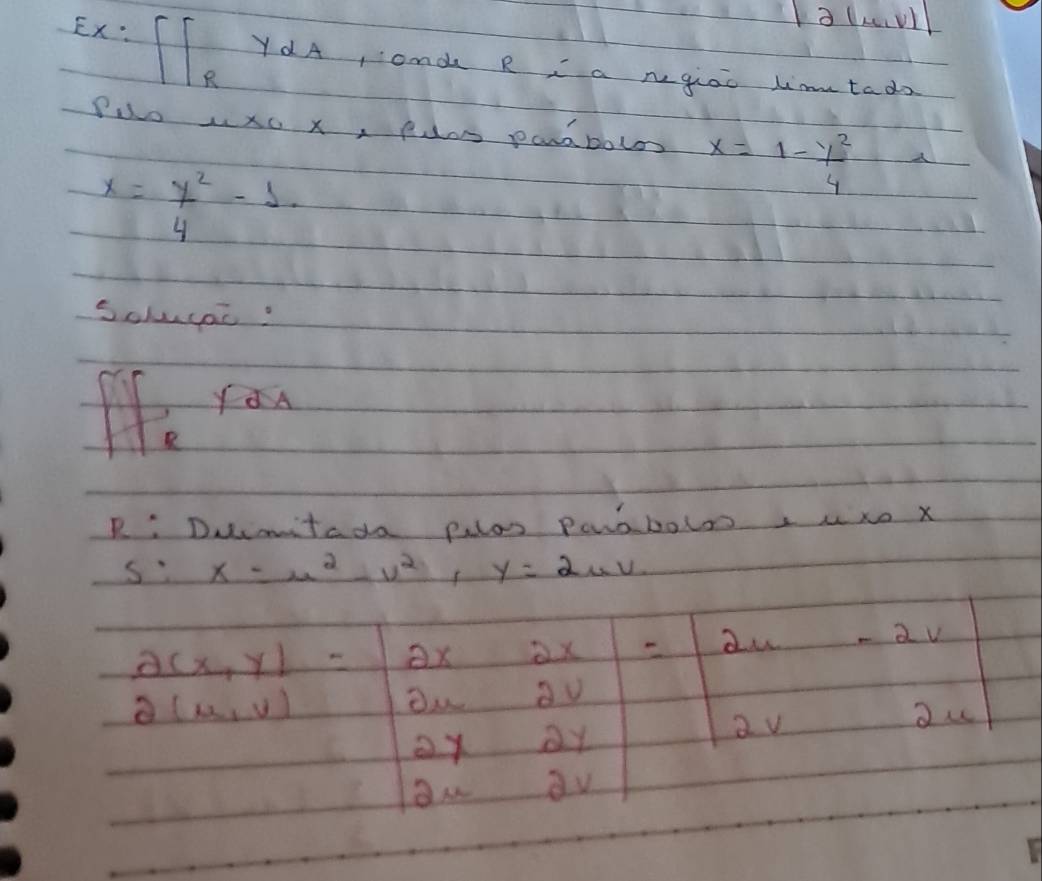 |∂(u,v)|
Ex: ∬_R y dA, onde R é a região limitada
pelo eixo x e pelas parábolas x = 1 - y²/4 e
x = y²/4 - 1.
Solução:
∬_R y dA
R: Delimitada pelas parábolas e eixo x
S: x = u² - v², y = 2uv
∂(x,y) = | ∂x ∂x | = | 2u - 2v |
∂(u,v) | ∂u ∂v | | 2v 2u |
| ∂y ∂y |
| ∂u ∂v |